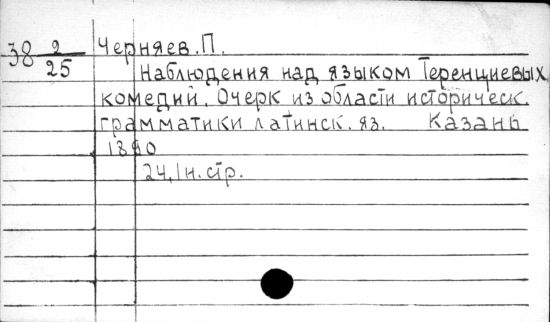 38 2/25 Черняев. П.
Наблюдения над языком Теренциевых
комедий. Очерк из области историческ.
грамматики латинск. яз. Казань
1890
24, 1 н. стр.